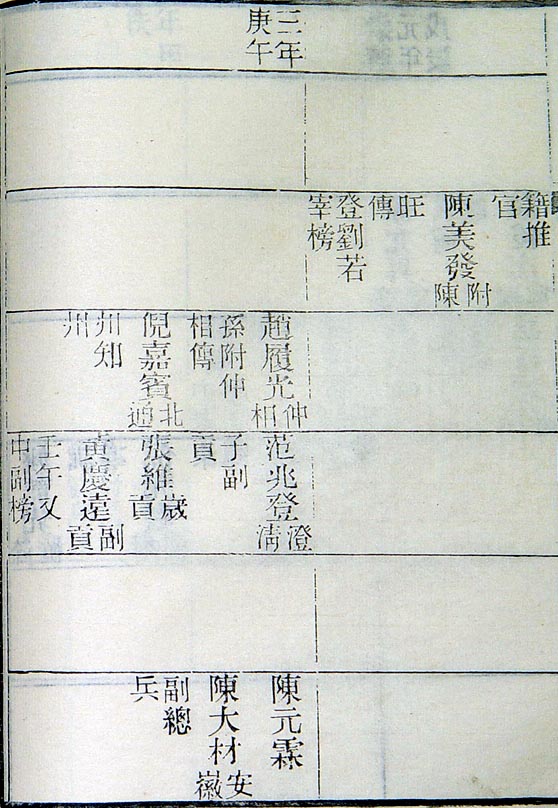 三年
庚午
籍推
官
陳美發附
陳
旺
傳
登劉若
宰榜
趙履光仲
相
孫附仲
相傳
倪嘉賓北
通
州知
州
范兆登澄
清
子副
貢
張維歲
貢
黄慶遠副
貢
壬午又
中副榜
陳元霖
陳大材安
徽
副總
兵